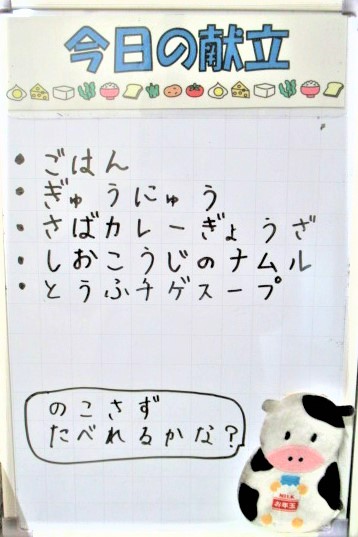 今日の献立
・ごはん
・ぎゅうにゅう
・さばカレーぎょうざ
・しおこうじのナムル
・とうふチゲスープ
のこさず
たべれるかな?
MILK
お年玉